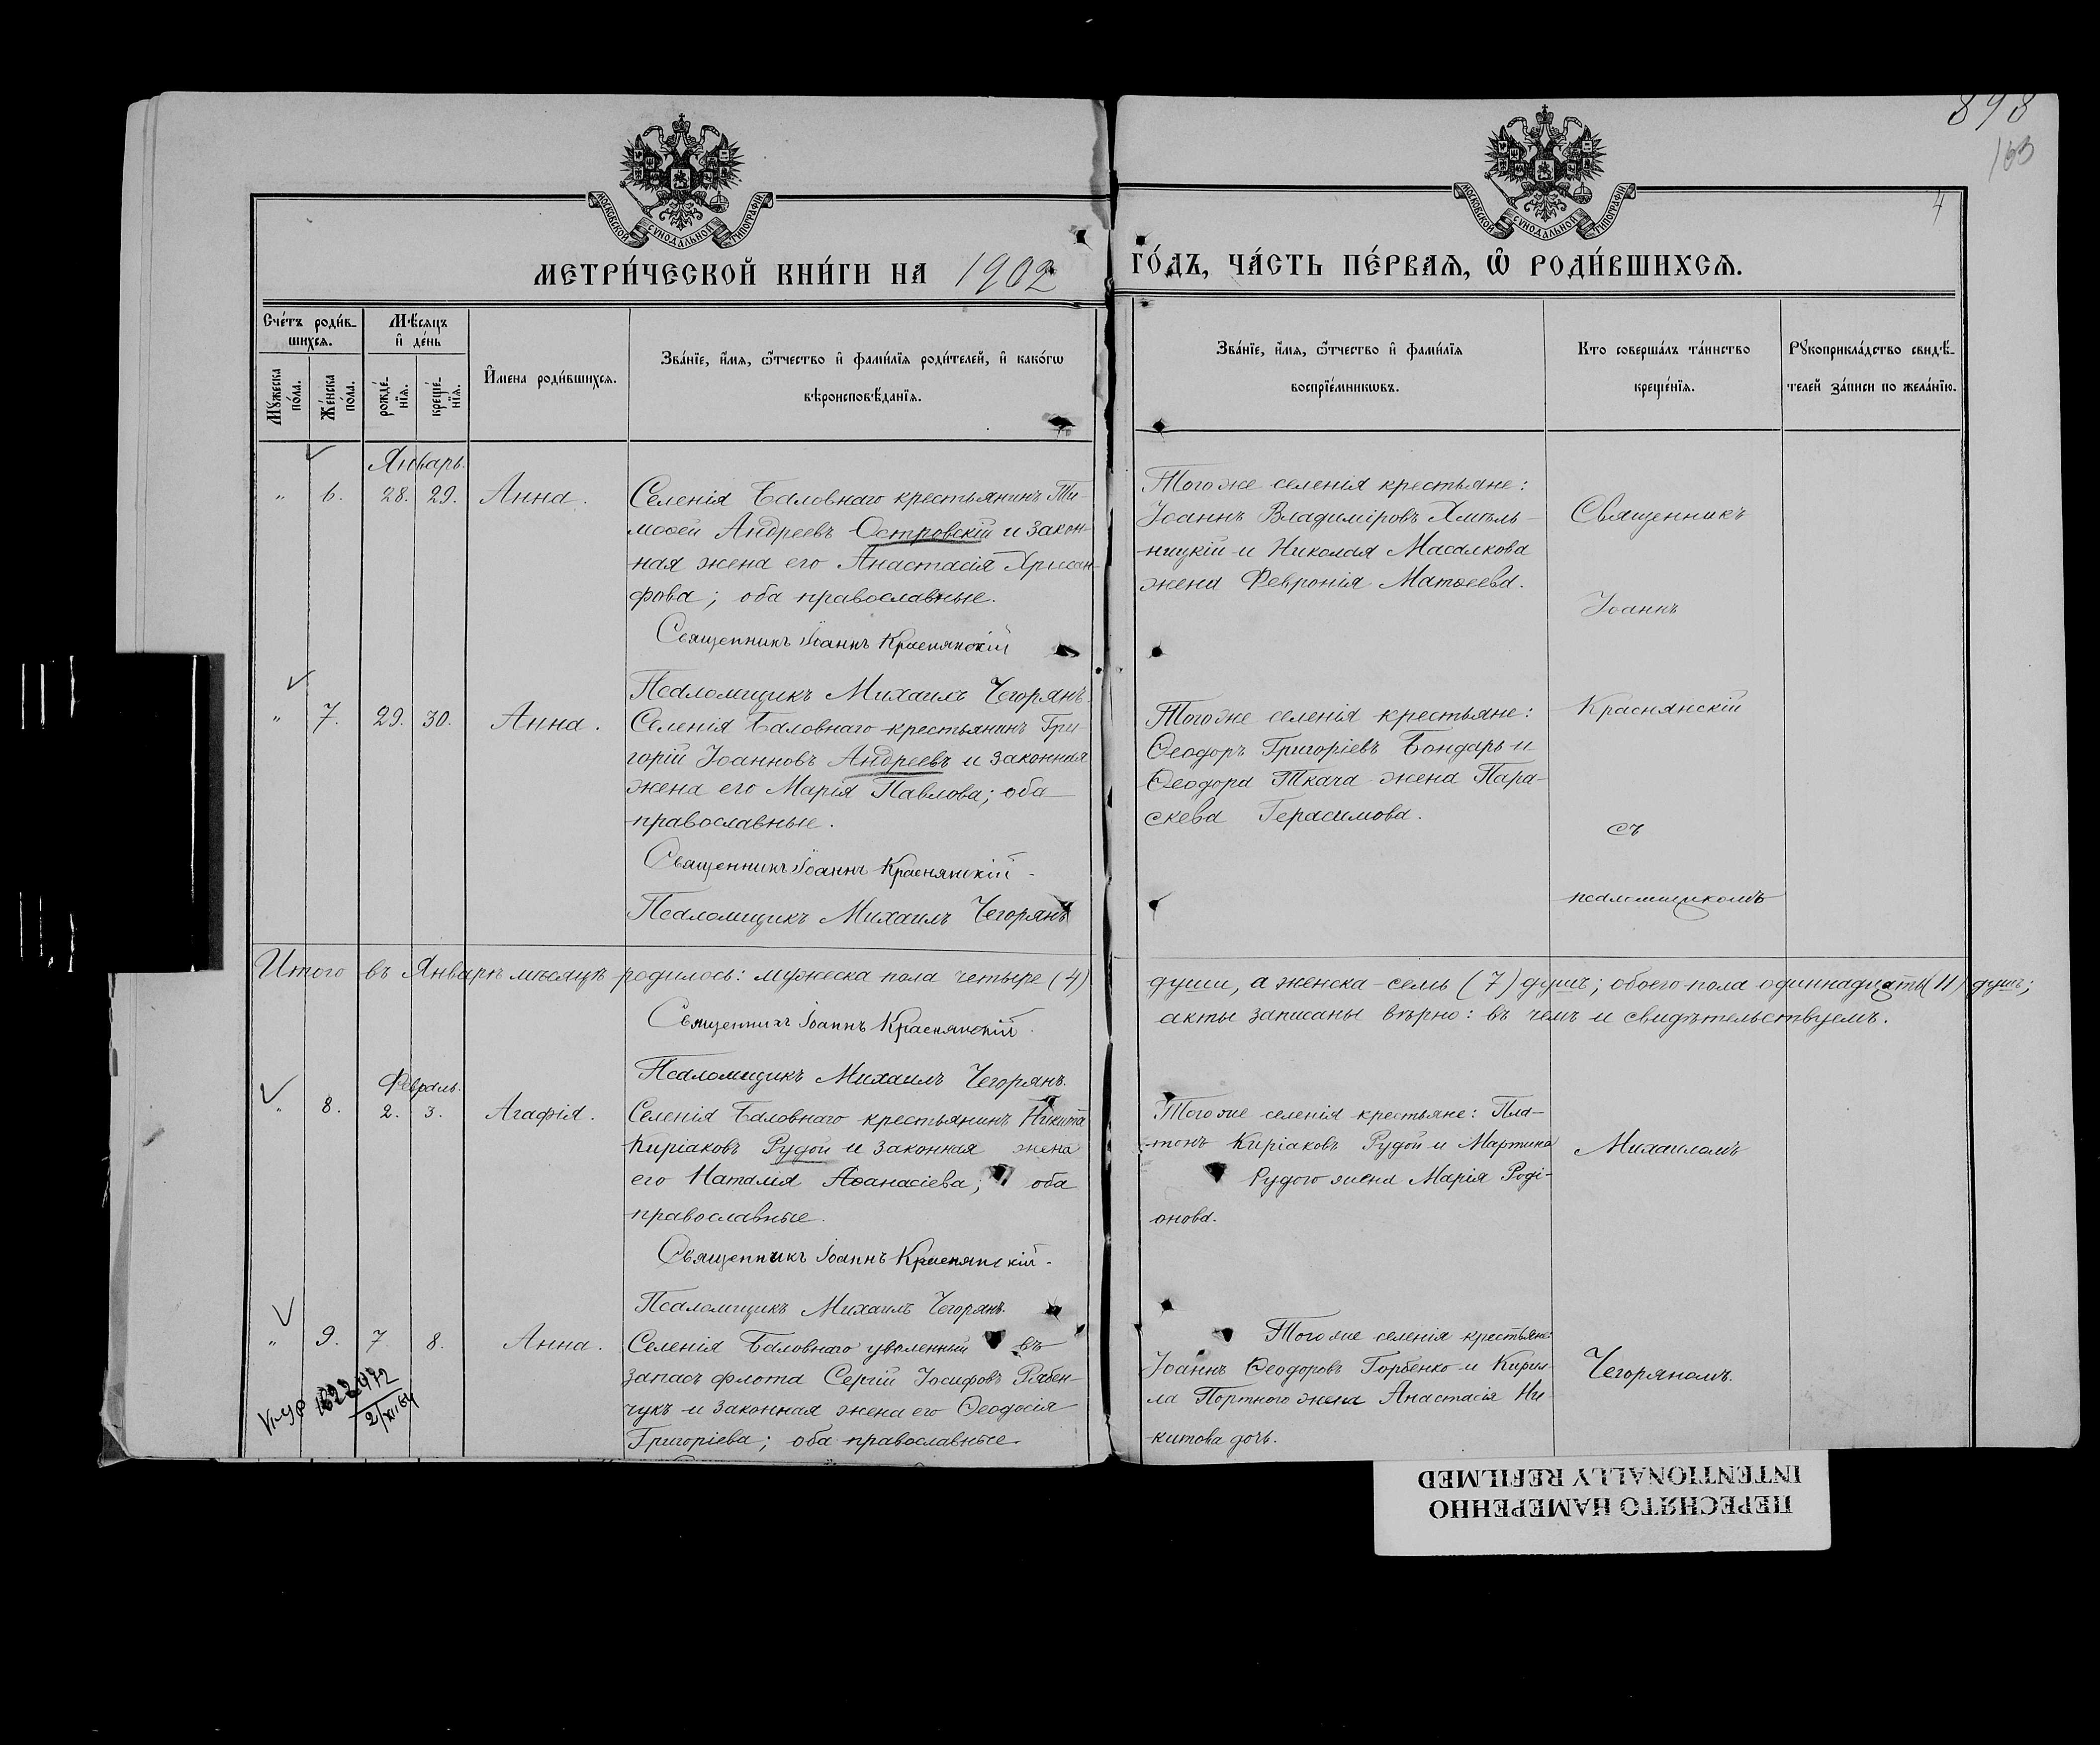 898
163
4
МОСКОВСКОЙ СѴНОДАЛЬНОЙ ТИПОГРАФІИ
МОСКОВСКОЙ СѴНОДАЛЬНОЙ ТИПОГРАФІИ
МЕТРИ́ЧЕСКОЙ КНИ́ГИ НА 1902 ГО́ДЪ, ЧА́СТЬ ПЕ́РВАѦ, Ѡ҆ РОДИ́ВШИХСѦ.
Сче́тъ роди́в-
шихсѧ.
Мꙋ́жеска
по́ла.
Же́нска
по́ла.
Мѣ́сѧцъ
и҆ де́нь
рожде́-
нїѧ.
креще́-
нїѧ.
И҆мена роди́вшихсѧ.
Зва́нїе, и҆́мѧ, ѻ҆́тчество и҆ фами́лїѧ роди́телей, и҆ како́гѡ
вѣроисповѣ́данїѧ.
Зва́нїе, и҆́мѧ, ѻ҆́тчество и҆ фами́лїѧ
воспрїе́мникѡвъ.
Кто соверша́лъ та́инство
креще́нїѧ.
Рꙋкоприкла́дство свидѣ́-
телей за́писи по жела́нїю.
Январь.
" 6. 28. 29. Анна.
Селенія Баловнаго крестьянинъ Ти-
моѳей Андреевъ Островскій и закон-
ная жена его Анастасія Хрисан-
фова; оба православные.
Священникъ Іоаннъ Краснянскій
Псаломщикъ Михаилъ Чегорянъ.
Тогоже селенія крестьяне:
Іоаннъ Владиміровъ Хмѣль-
ницкій и Николая Масалкова
жена Февронія Матѳеева.
" 7. 29. 30. Анна.
Селенія Баловнаго крестьянинъ Гри-
горій Іоанновъ Андреевъ и законная
жена его Марія Павлова; оба
православные.
Священникъ Іоаннъ Краснянскій.
Псаломщикъ Михаилъ Чегорянъ
Тогоже селенія крестьяне:
Ѳеодоръ Григоріевъ Бондарь и
Ѳеодора Ткача жена Пара-
скева Герасимова.
Священникъ
Іоаннъ
Краснянскій
съ
псаломщикомъ
Михаиломъ
Чегоряномъ.
Итого въ Январѣ мѣсяцѣ родилось: мужеска пола четыре (4) души, а женска-семь (7) душъ; обоего пола одиннадцать (11) душъ;
акты записаны вѣрно: въ чемъ и свидѣтельствуемъ.
Священникъ Іоаннъ Краснянскій.
Псаломщикъ Михаилъ Чегорянъ.
Февраль.
" 8. 2. 3. Агафія.
Селенія Баловнаго крестьянинъ Никита
Киріаковъ Рудой и законная жена
его Наталія Аѳанасіева; оба
православные.
Священникъ Іоаннъ Краснянскій.
Псаломщикъ Михаилъ Чегорянъ.
Тогоже селенія крестьяне: Пла-
тонъ Киріаковъ Рудой и Мартина
Рудого жена Марія Роді-
онова.
" 9. 7 8. Анна.
Селенія Баловнаго уволенный въ
запасъ флота Сергій Іосифовъ Рябен-
чукъ и законная жена его Ѳеодосія
Григоріева; оба православные.
Тогоже селенія крестьяне:
Іоаннъ Ѳеодоровъ Горбенко и Кирил-
ла Портного жена Анастасія Ни-
китова дочь.
ПЕРЕСНЯТО НАМЕРЕННО
INTENTIONALLY REFILMED